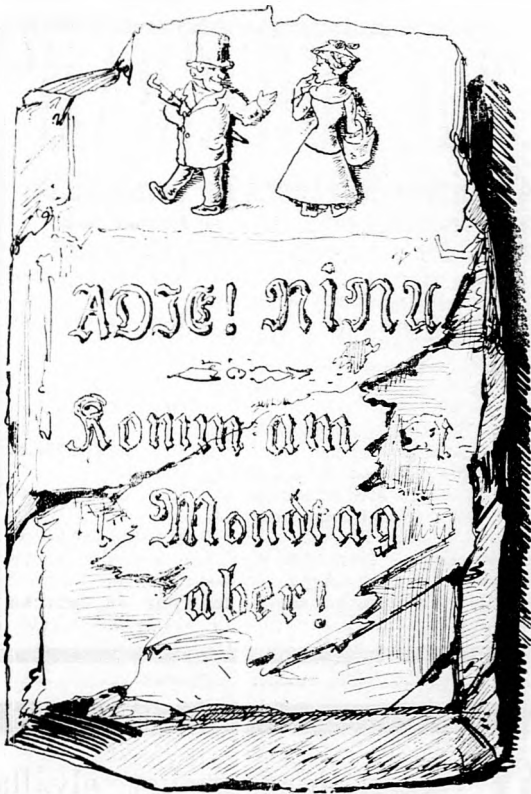 ADJE! NINU
Komm am
Mondtag
aber!